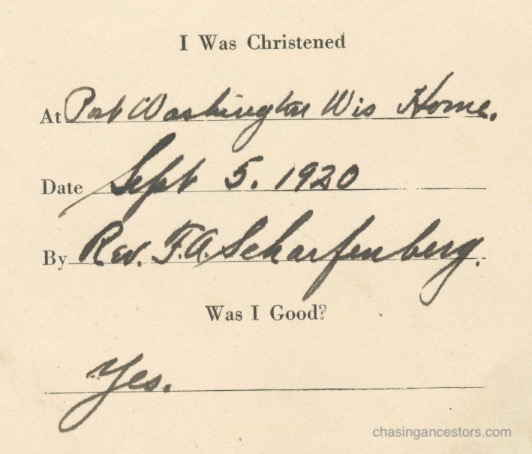 I Was Christened
At Port Washington Wis Home.
Date Sept 5. 1920
By Rev. F.A. Scharfenberg.
Was I Good?
Yes.
chasingancestors.com